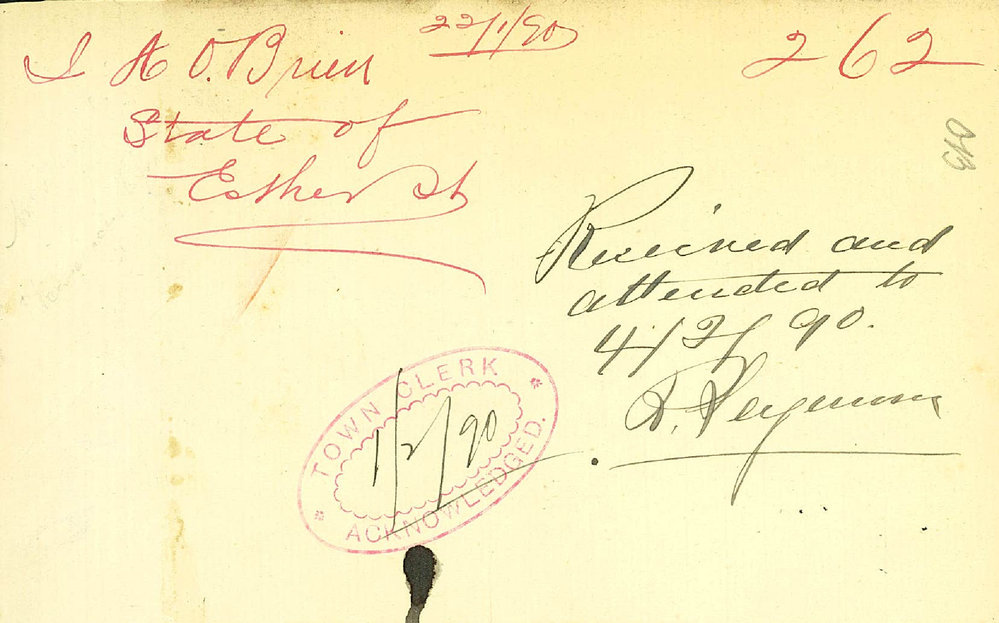 22/1/90
262
J A O.Brien
State of
Esther St
Received and
attended to
4/2/90.
D. Ferguson
TOWN CLERK
1/2/90
ACKNOWLEDGED.